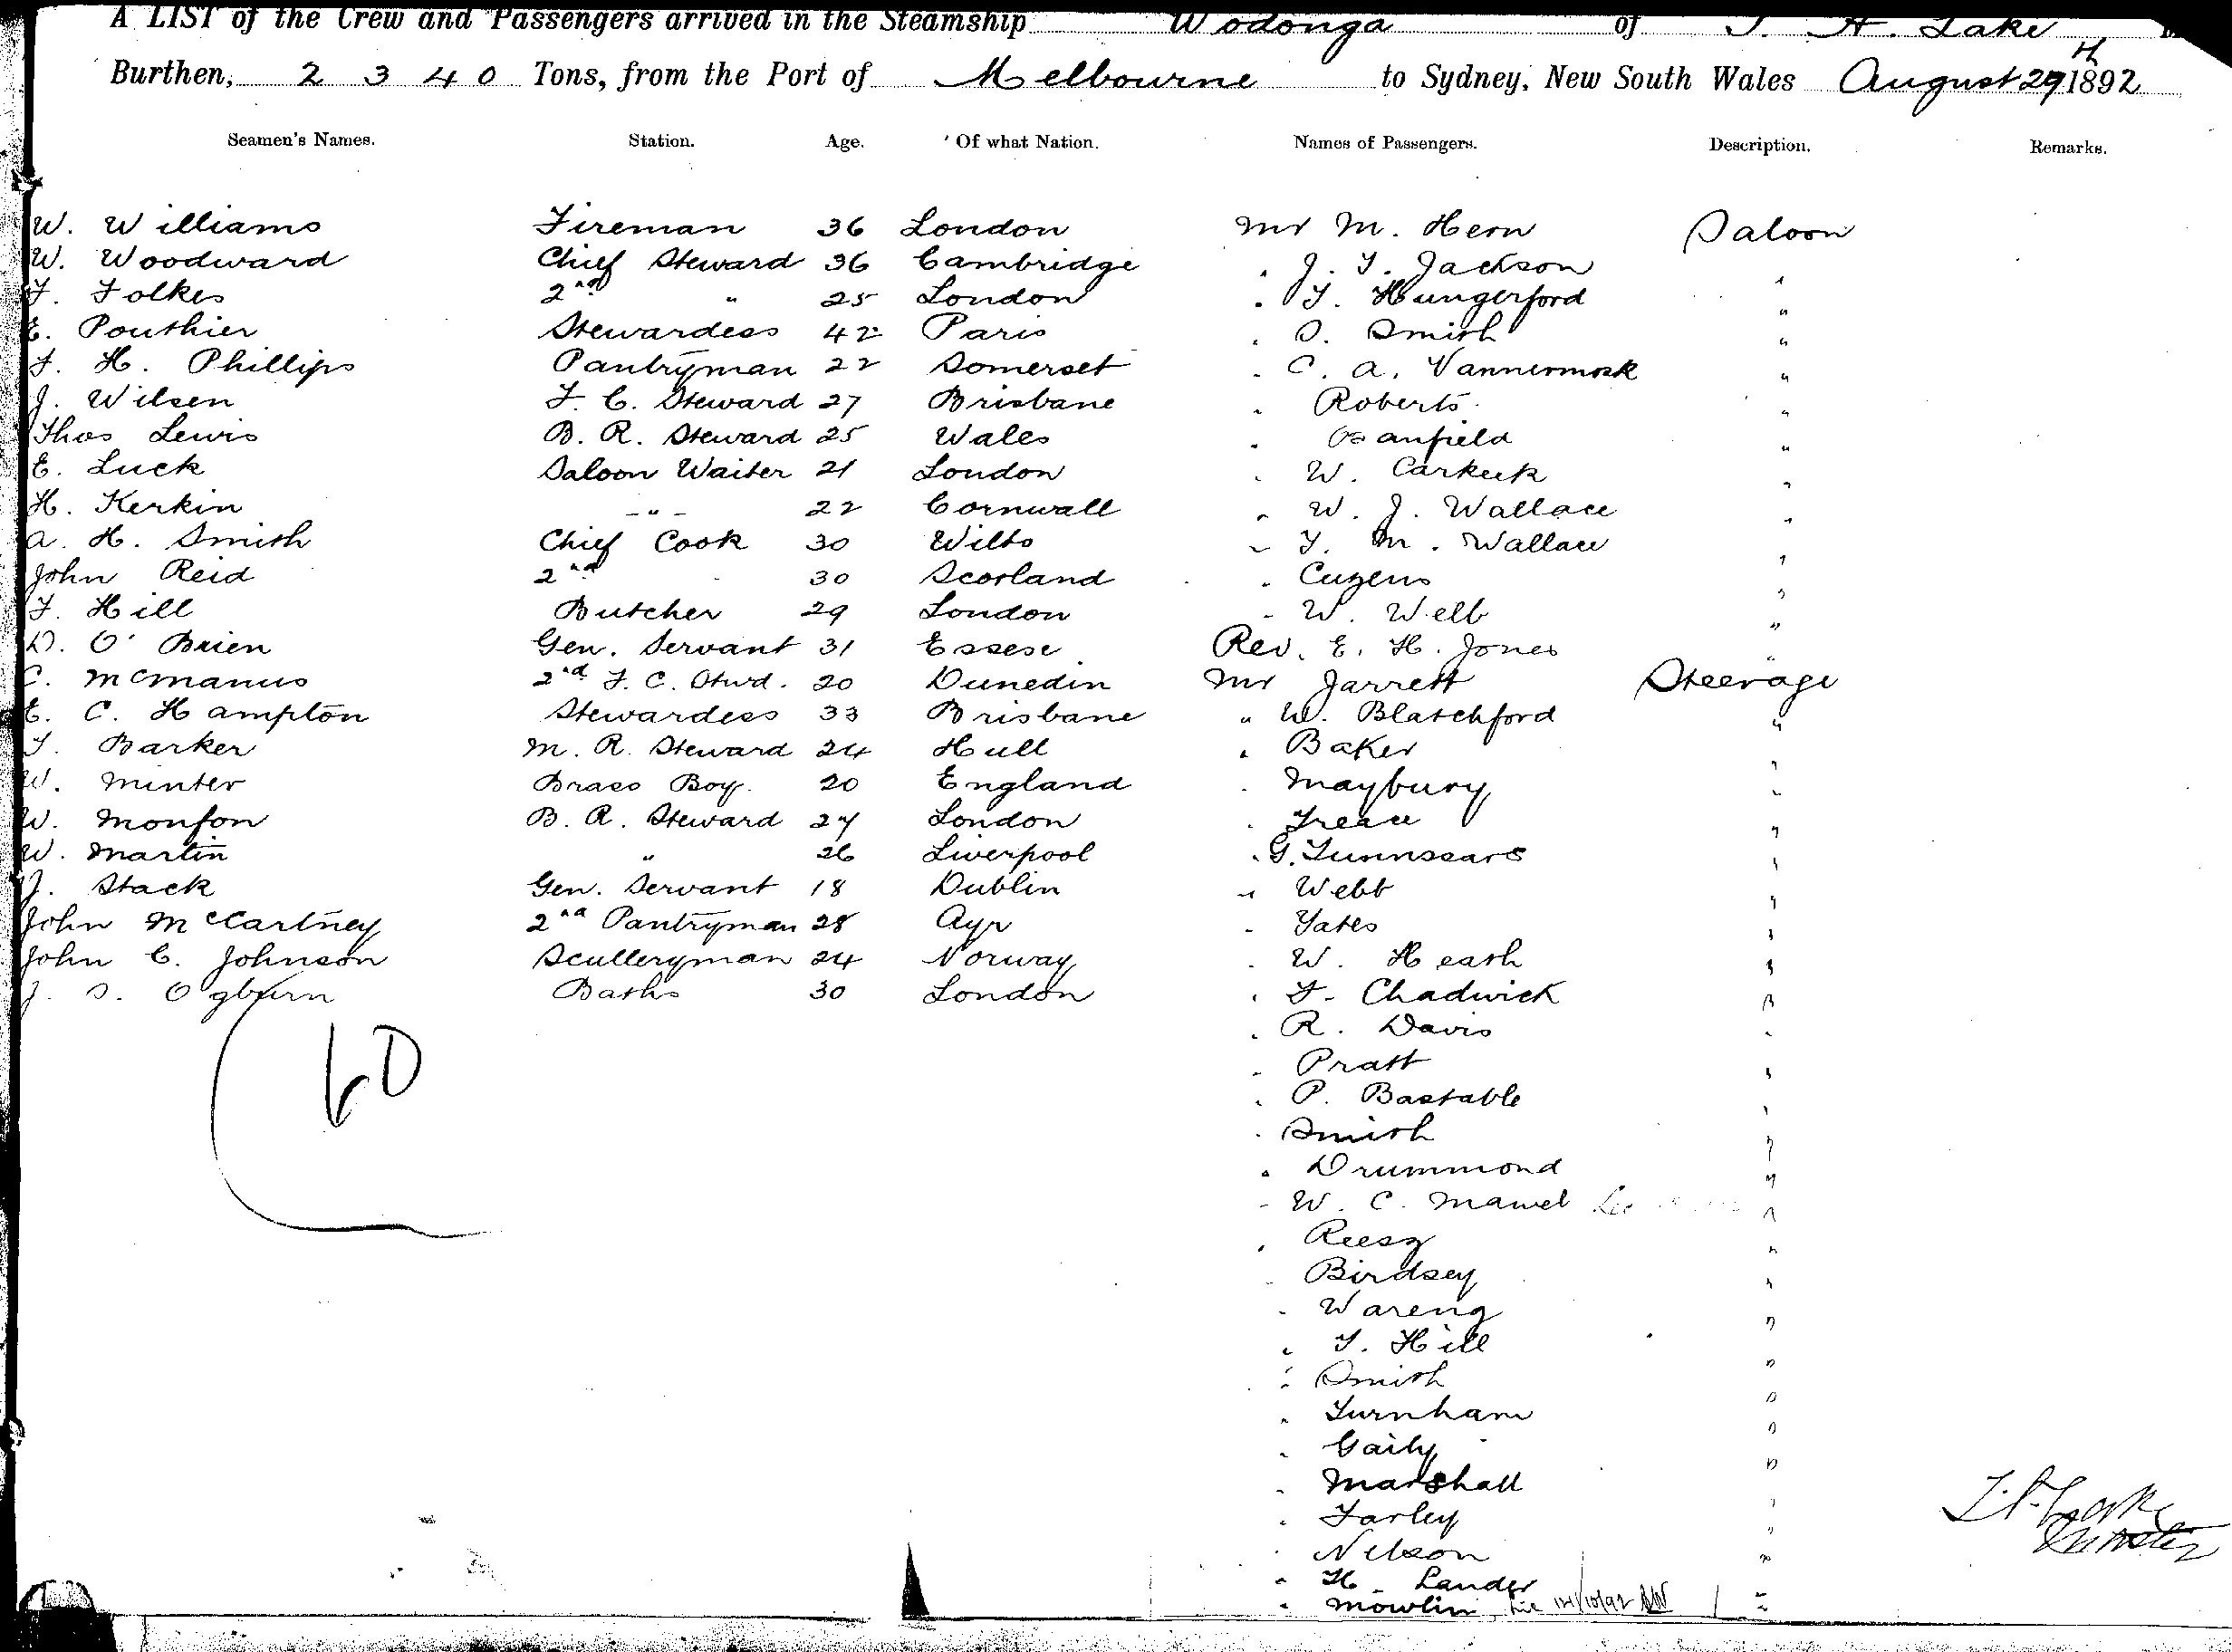 A LIST of the Crew and Passengers arrived in the Steamship Wodonga of J. H. Lake
Burthen, 2340 Tons, from the Port of Melbourne to Sydney, New South Wales August 29th 1892
Seamen's Names. Station. Age. Of what Nation. Names of Passengers. Description. Remarks.
W. Williams Fireman 36 London Mr M. Hern Saloon
W. Woodward Chief Steward 36 Cambridge " J. T. Jackson "
F. Folkes 2nd " 25 London " T. Hungerford "
E. Pouthier Stewardess 42 Paris " O. Smith "
F. H. Phillips Pantryman 22 Somerset " C. A. Vannermark "
J. Wilsen F. C. Steward 27 Brisbane " Roberts "
Thos Lewis B. R. Steward 25 Wales " Banfield "
E. Luck Saloon Waiter 21 London " W. Carkeek "
H. Kerkin - " - 22 Cornwall " W. J. Wallace "
A. H. Smith Chief Cook 30 Wilts " T. M. Wallace "
John Reid 2nd " 30 Scotland " Cuzens "
F. Hill Butcher 29 London " W. Welb "
D. O'Brien Gen. Servant 31 Essese Rev. E. H. Jones "
C. McManus 2nd F. C. Stwd. 20 Dunedin Mr Jarrett Steerage
E. C. Hampton Stewardess 33 Brisbane " W. Blatchford "
T. Barker M. R. Steward 24 Hull " Baker "
W. Minter Brass Boy. 20 England " Maybury "
W. Monfon B. R. Steward 27 London "
W. Martin " 26 Liverpool " G.
J. Stack Gen. Servant 18 Dublin " Webb "
John McCartney 2nd Pantryman 28 Ayr " Yates "
John C. Johnson Sculleryman 24 Norway " W. Heath "
J. S. Ogburn Baths 30 London " F. Chadwick "
60 " R. Davis "
" Pratt "
" P. Bastable "
" Smith "
" Drummond "
" W. C. Mawel "
" Reesz "
" Birdsey "
" Wareng "
" T. Hill "
" Smith "
" Turnham "
" Gaily "
" Marshall "
" Farley "
" Nelson "
" H. Lander "
" Mowlin 14/10/92 "
Master